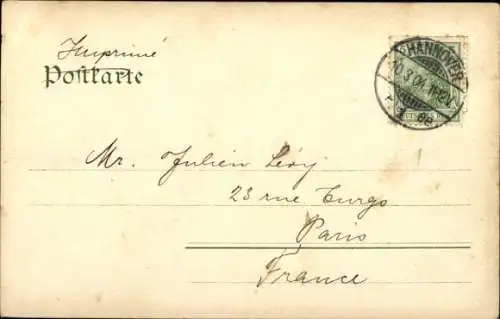 Imprimé
Postkarte
HANNOVER
Mr. Julien Lévy
23 rue Turgo
Paris
France